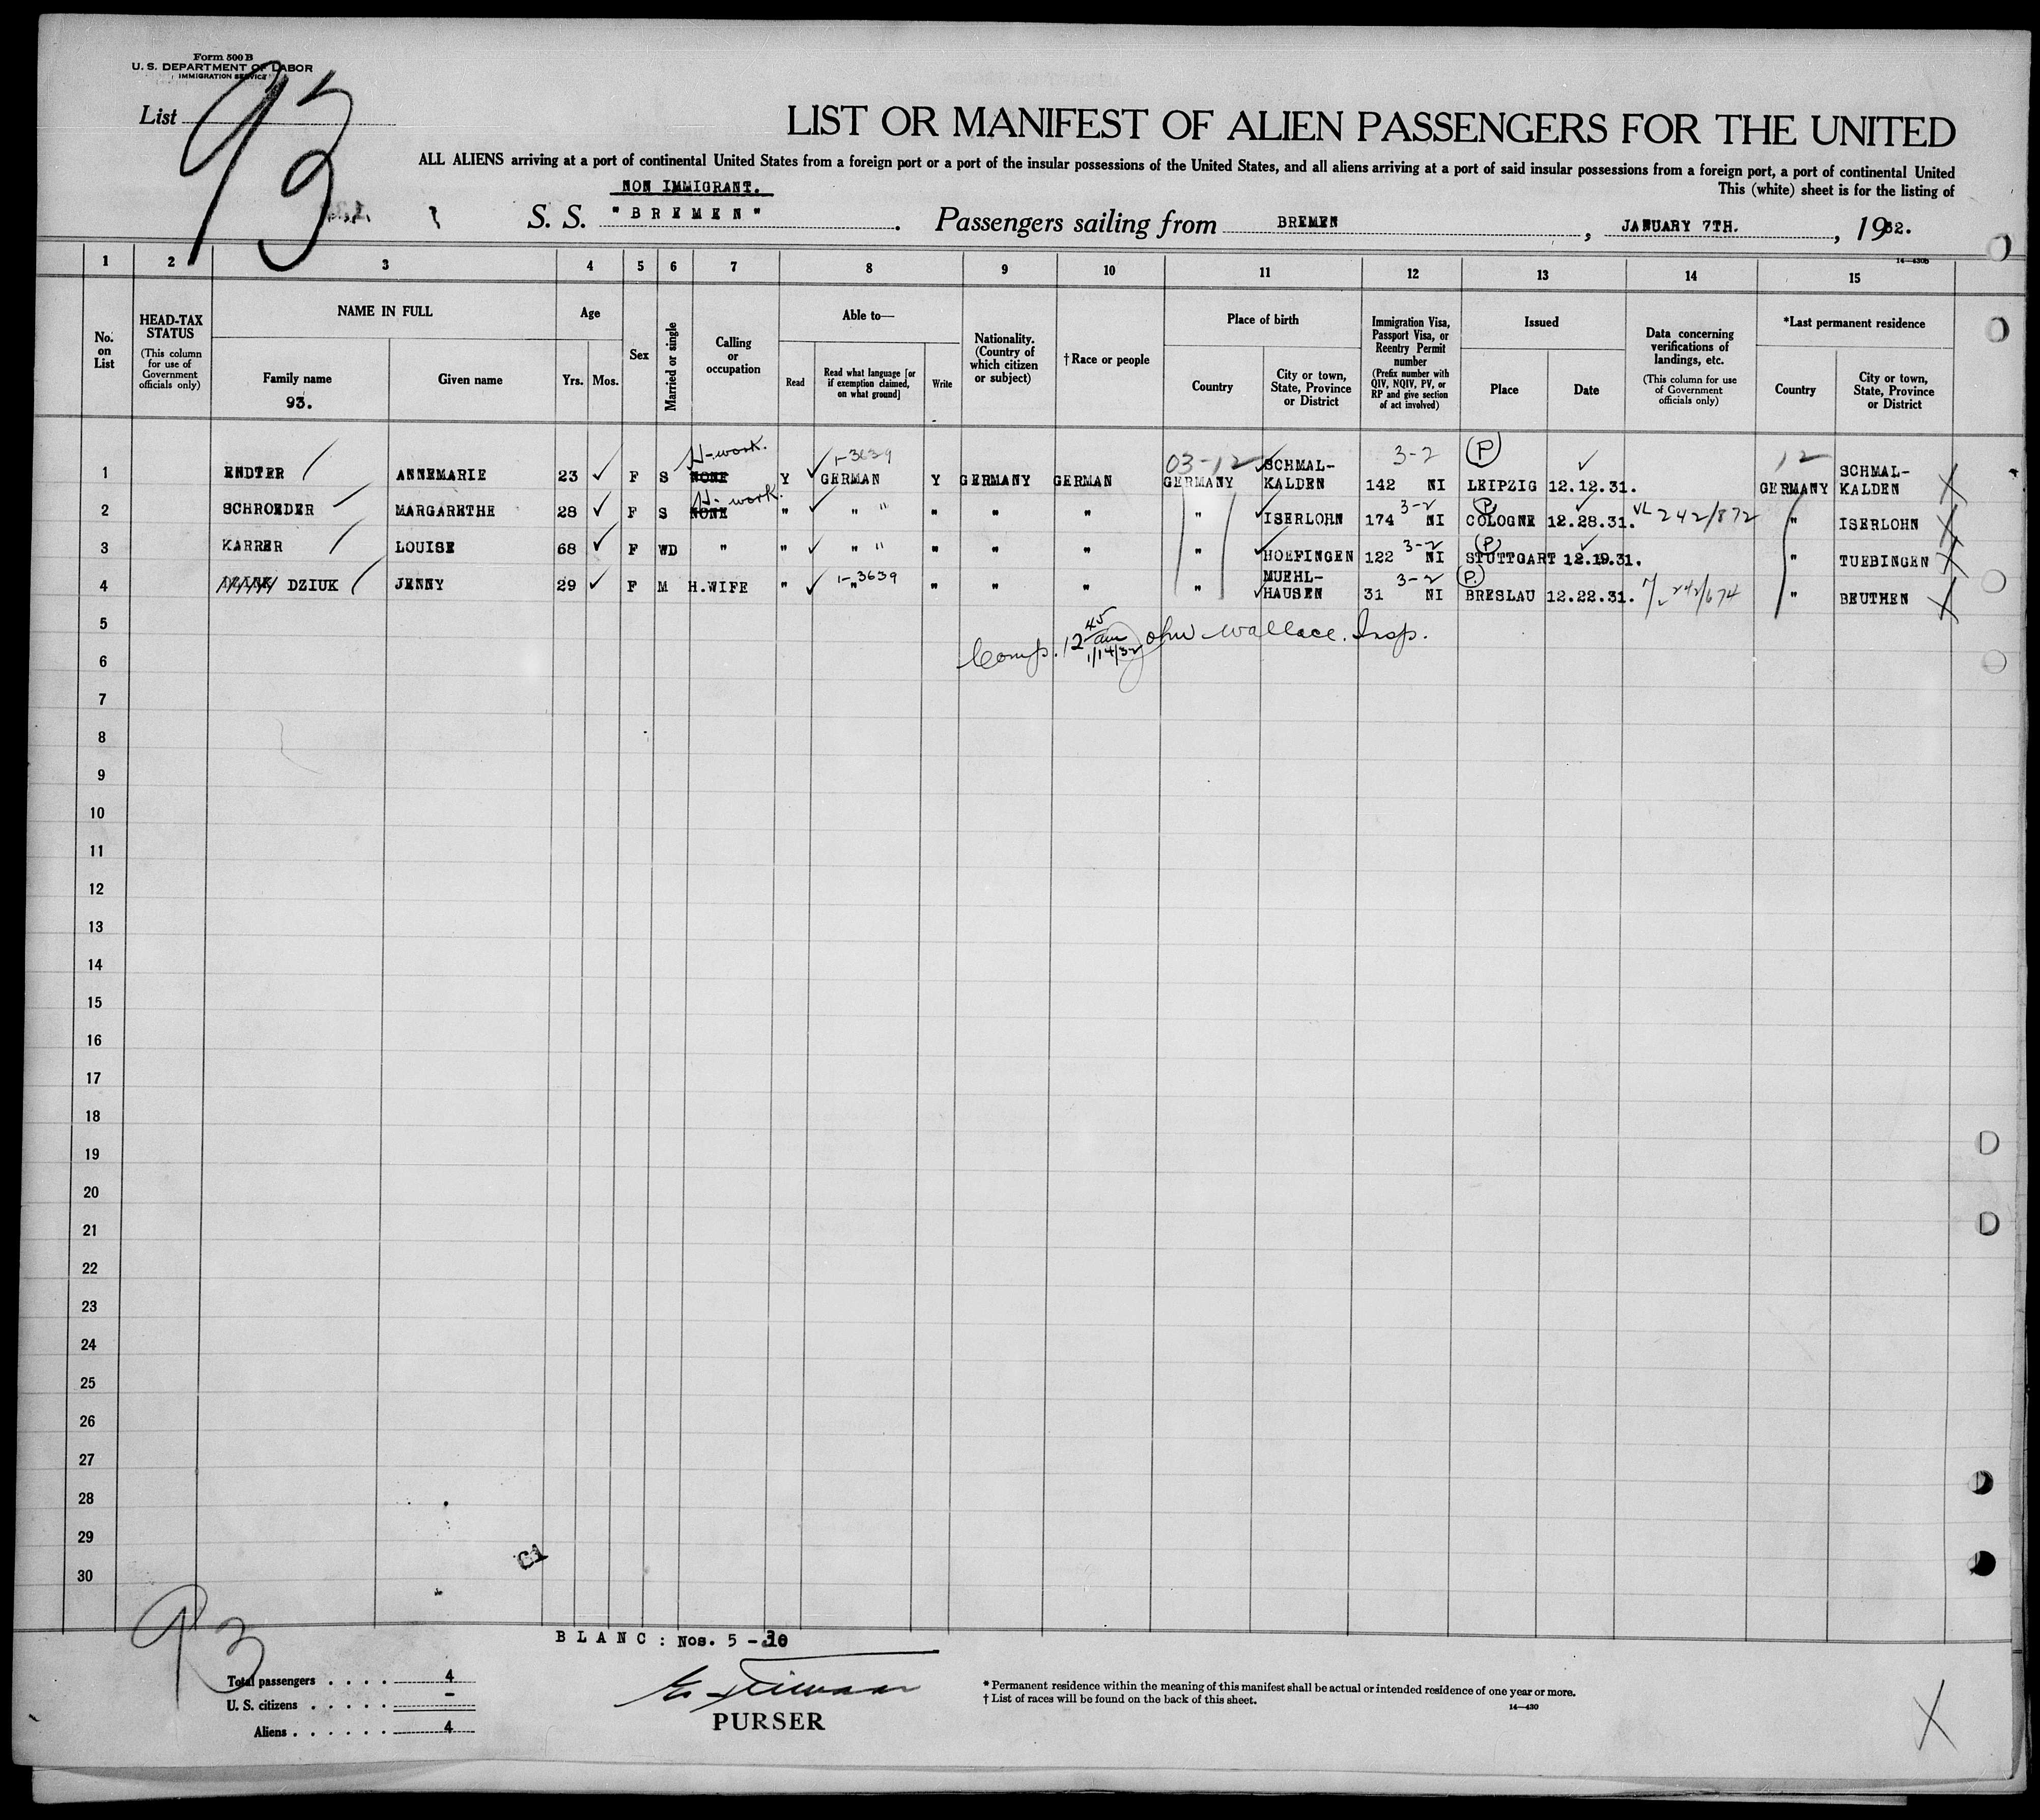 Form 500 B
U. S. DEPARTMENT OF LABOR
IMMIGRATION SERVICE
List 93
LIST OR MANIFEST OF ALIEN PASSENGERS FOR THE UNITED
ALL ALIENS arriving at a port of continental United States from a foreign port or a port of the insular possessions of the United States, and all aliens arriving at a port of said insular possessions from a foreign port, a port of continental United
NON IMMIGRANT. This (white) sheet is for the listing of
S. S. "BREMEN". Passengers sailing from BREMEN, JANUARY 7TH., 1932.
14—430b
1 2 3 4 5 6 7 8 9 10 11 12 13 14 15
No. on List
HEAD-TAX STATUS (This column for use of Government officials only)
NAME IN FULL
Family name 93.
Given name
Age
Yrs. Mos.
Sex
Married or single
Calling or occupation
Able to—
Read
Read what language [or if exemption claimed, on what ground]
Write
Nationality. (Country of which citizen or subject)
†Race or people
Place of birth
Country
City or town, State, Province or District
Immigration Visa, Passport Visa, or Reentry Permit number (Prefix number with QIV, NQIV, PV, or RP and give section of act involved)
Issued
Place
Date
Data concerning verifications of landings, etc. (This column for use of Government officials only)
*Last permanent residence
Country
City or town, State, Province or District
H-work. 1-3639 03-12 3-2 P 12
1 ENDTER ANNEMARIE 23 F S NONE Y GERMAN Y GERMANY GERMAN GERMANY SCHMAL-KALDEN 142 NI LEIPZIG 12.12.31. GERMANY SCHMAL-KALDEN
H-work. 3-2 P
2 SCHROEDER MARGARETHE 28 F S NONE " " " " " " " ISERLOHN 174 NI COLOGNE 12.28.31. VL 242/872 " ISERLOHN
3-2 P
3 KARRER LOUISE 68 F WD " " " " " " " " HOEFINGEN 122 NI STUTTGART 12.19.31. " TUEBINGEN
1-3639 3-2 P
4 DZIUK JENNY 29 F M H.WIFE " " " " " " MUEHL-HAUSEN 31 NI BRESLAU 12.22.31. 242/674 " BEUTHEN
5
Comp. 12 45 am 1/14/32 John Wallace. Insp.
6
7
8
9
10
11
12
13
14
15
16
17
18
19
20
21
22
23
24
25
26
27
28
29
30
93
BLANC: Nos. 5 - 30
Total passengers . . . . . 4
U. S. citizens . . . . . -
Aliens . . . . . . 4
PURSER
* Permanent residence within the meaning of this manifest shall be actual or intended residence of one year or more.
† List of races will be found on the back of this sheet.
14—430